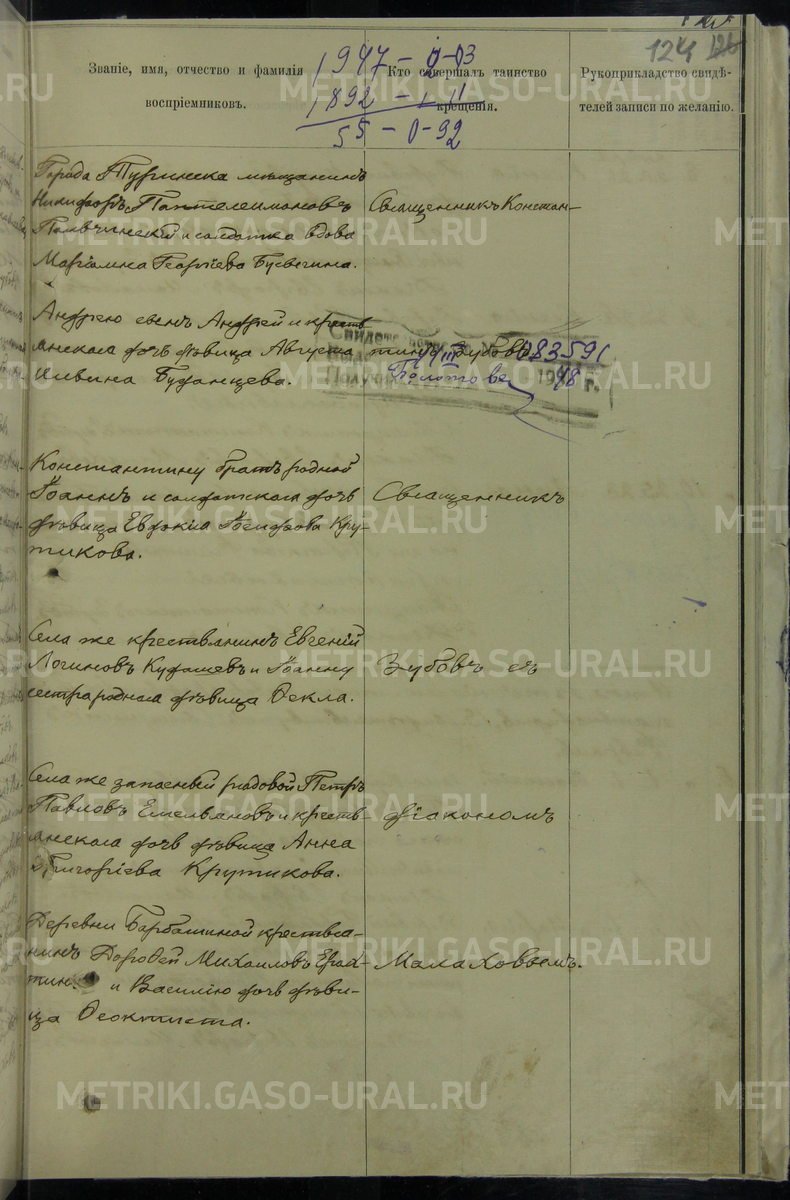 124
Званіе, имя, отчество и фамилія
воспріемниковъ.
Кто совершалъ таинство
крещенія.
Рукоприкладство свидѣ-
телей записи по желанію.
1947 – 0-03
1892 – 1 11
55 – 0-92
Города Туринска мѣщанинъ
Никифоръ Пантелеимоновъ
и солдатка вдова
Маріамна Георгіева
Священникъ Констан-
Андрею сынъ Андрей и кресть
янскаго дочь дѣвица Августа
Буданцева.
тинъ Зубовъ
083591
1948 г.
Константину братъ родной
Іоаннъ и солдатская дочь
дѣвица Евдокія Іосифова Кру-
тикова.
Священникъ
Села же крестьянинъ Евгеній
Логиновъ Кудашевъ и Іоанну
сестра родная дѣвица Ѳекла.
Зубовъ съ
Села же запасный рядовой Петръ
Павловъ Емельяновъ и кресть-
янская дочь дѣвица Анна
Григоріева Крутикова.
діакономъ
Деревни Барбашиной крестья-
нинъ Дороѳей Михаиловъ
и Василію дочь дѣви-
ца Ѳеоктиста.
Малаховымъ.
METRIKI.GASO-URAL.RU